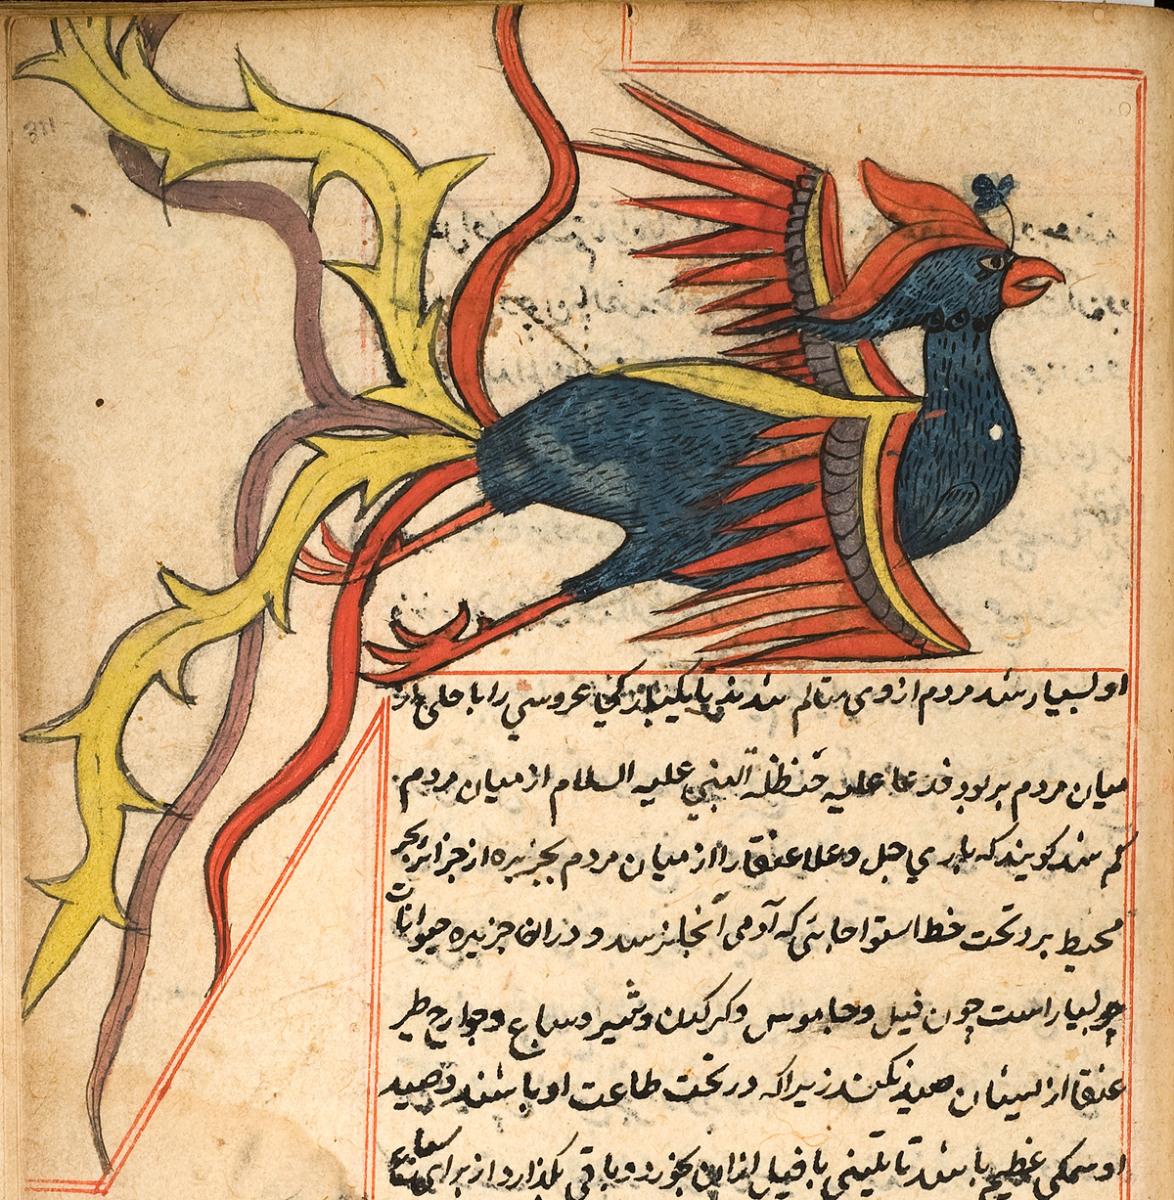 311
او بسیار شد مردم ازوی متالم شدند تا یکبار عروسی را با حلی از
میان مردم بربود فدعا علیه حنظلة النبی علیه السلام از میان مردم
کم شد کویند که باری جل وعلا عنقا را از میان مردم بجزیره از جزائر بحر
محیط برد تحت خط استوا جایی که آدمی آنجا نرسد و دران جزیره حیوانات
بسیار است چون فیل و جاموس و کرکدن و شیر و سباع و جوارح طیر
عنقا از ایشان صید نکند زیرا که در تحت طاعت او باشند و صید
او سمکی عظیم باشد تا تنینی یا فیل ازان بخورد و باقی بگذارد از برای سباع